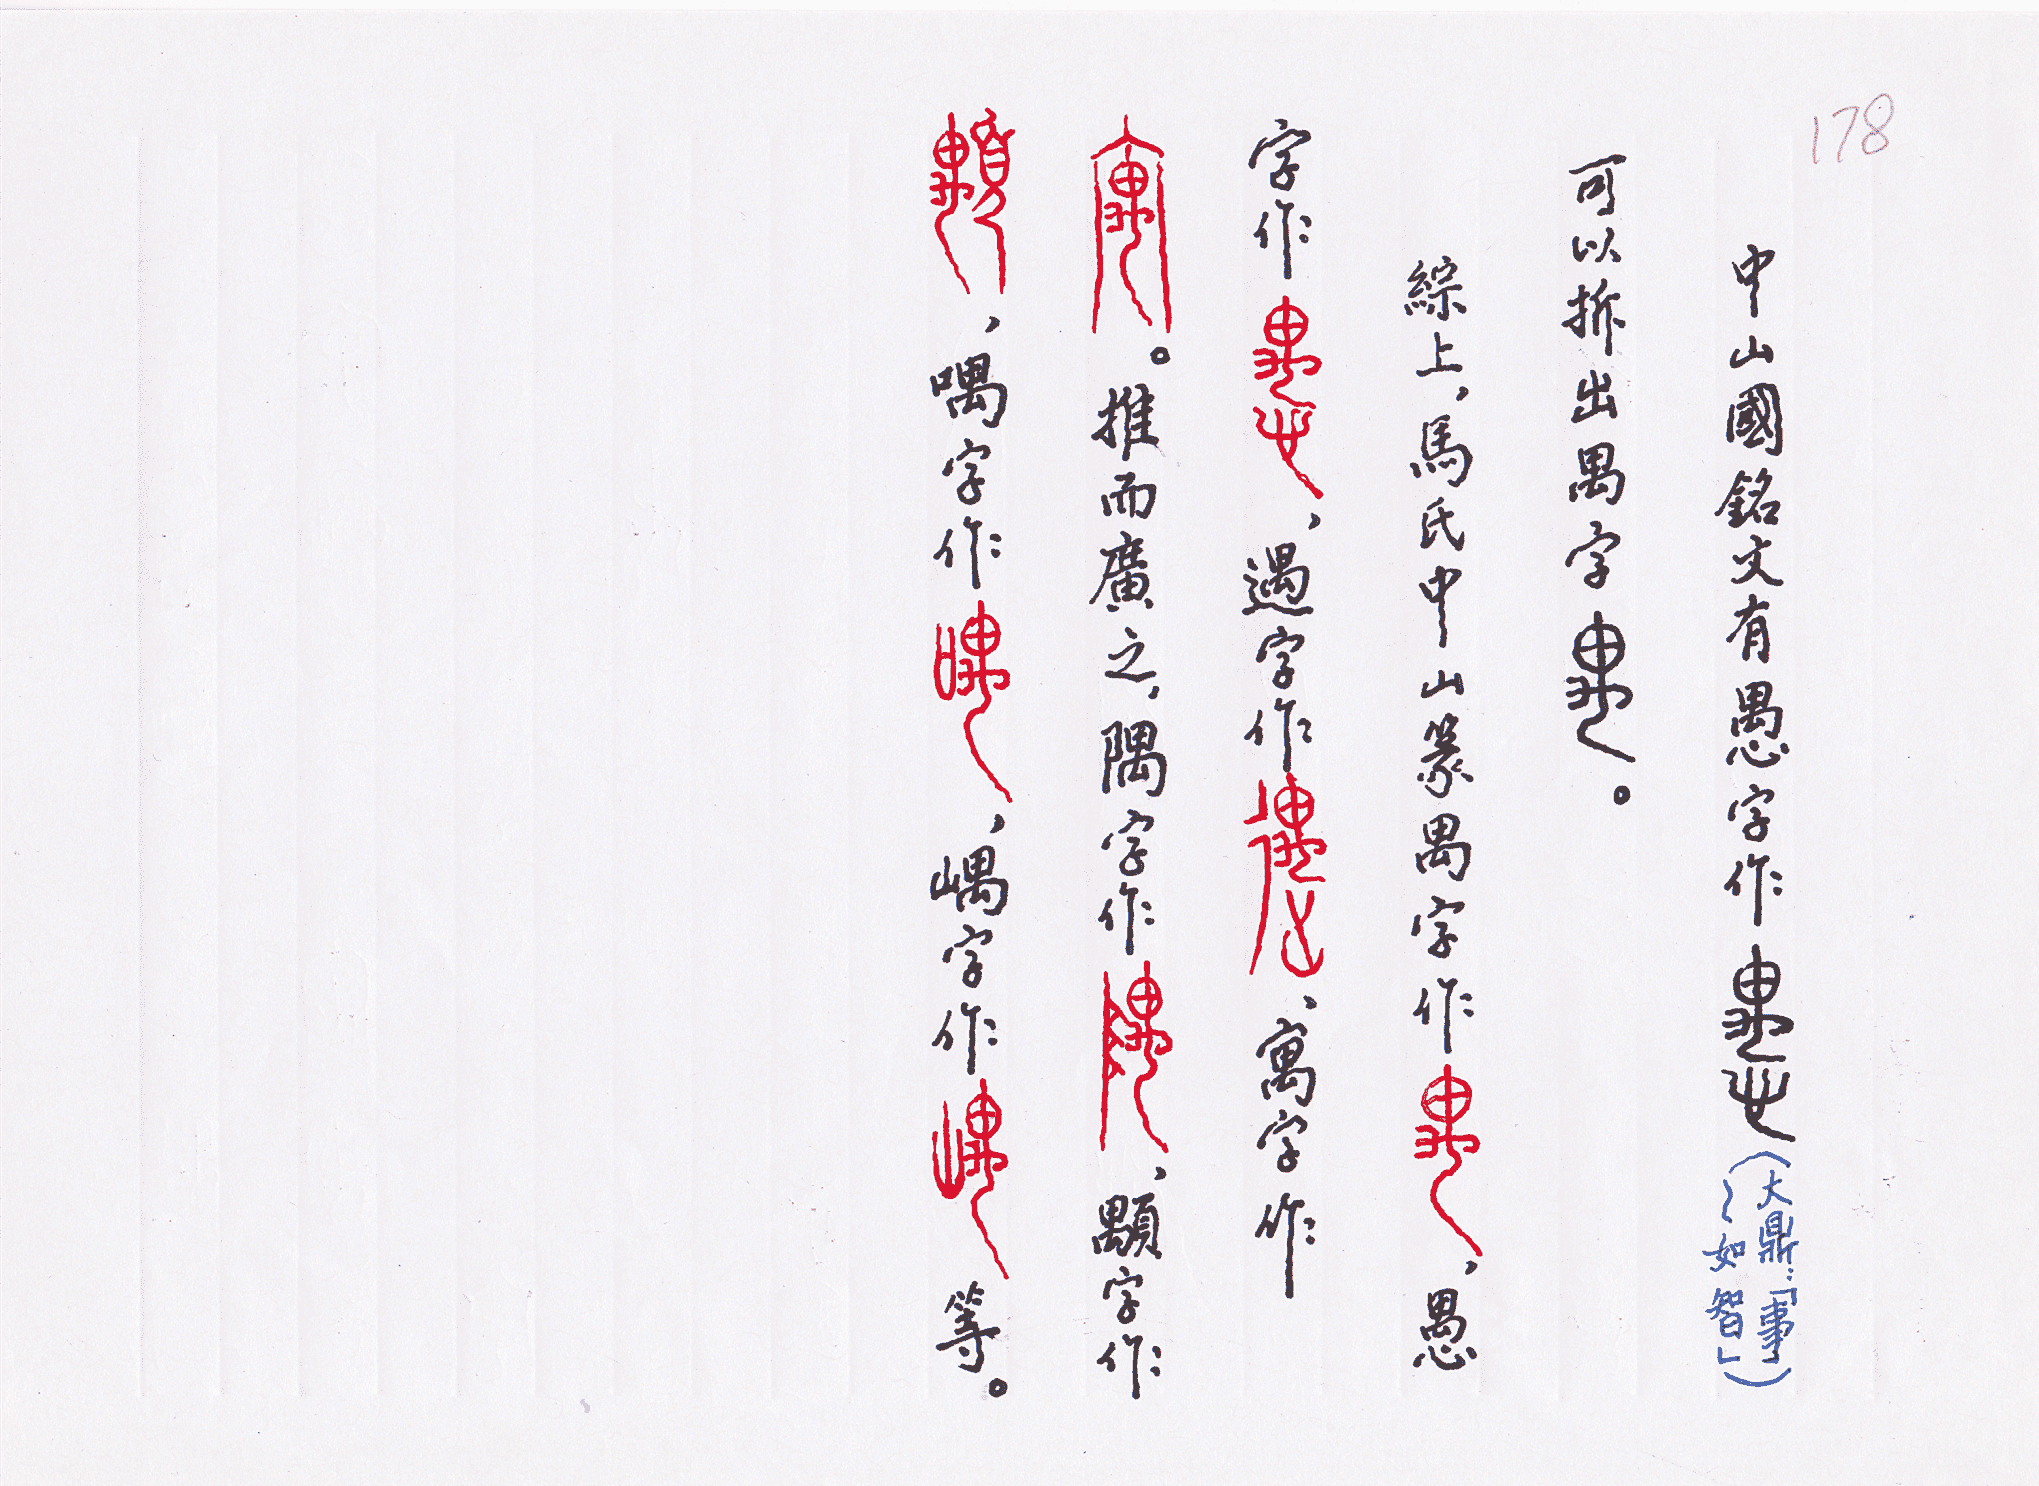 178
中山國銘文有愚字作(大鼎:「事
〻如智」)
可以拆出禺字。
綜上,馬氏中山篆禺字作,愚
字作,遇字作,寓字作
。推而廣之,隅字作,顒字作
,喁字作,嵎字作等。